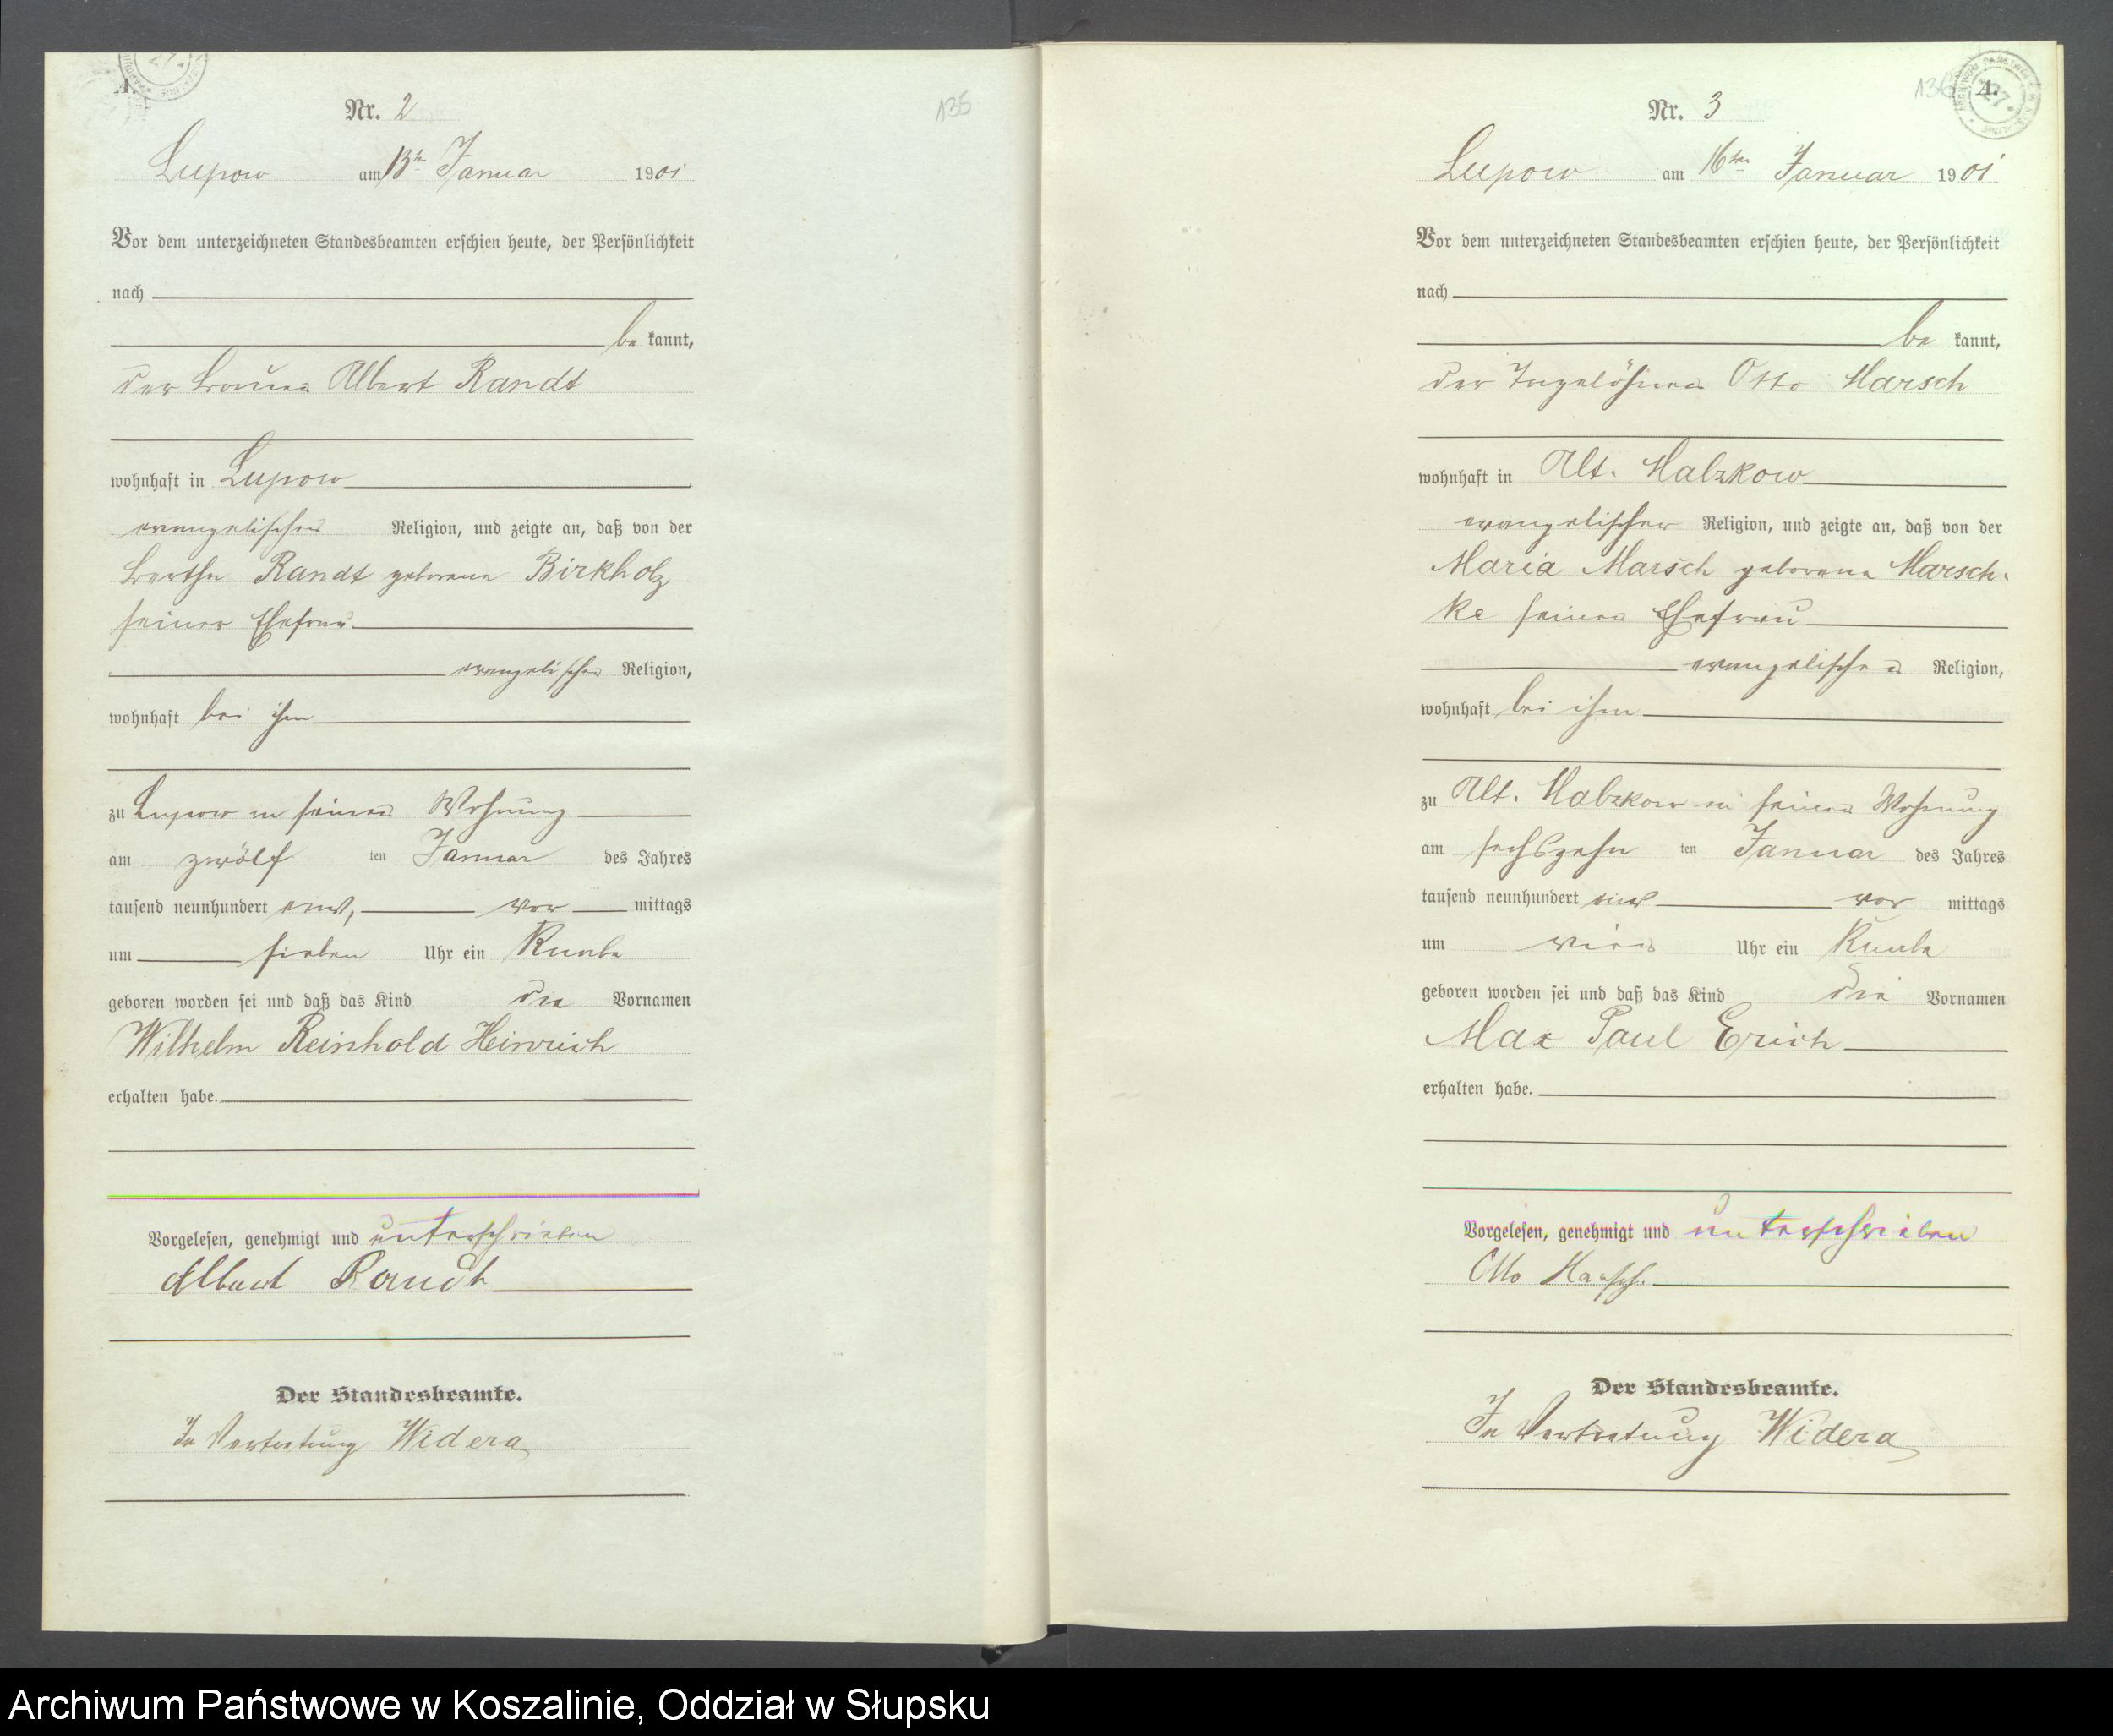 A.
Nr. 2
135
Lupow am 13ten Januar 1901
Vor dem unterzeichneten Standesbeamten erschien heute, der Persönlichkeit
nach
be kannt,
der Brauer Albert Randt
wohnhaft in Lupow
evangelischer Religion, und zeigte an, daß von der
Bertha Randt geborene Birkholz
seiner Ehefrau
evangelischer Religion,
wohnhaft bei ihm
zu Lupow in seiner Wohnung
am zwölf ten Januar des Jahres
tausend neunhundert eins, vor mittags
um sieben Uhr ein Knabe
geboren worden sei und daß das Kind die Vornamen
Wilhelm Reinhold Heinrich
erhalten habe.
Vorgelesen, genehmigt und unterschrieben
Albert Randt
Der Standesbeamte.
In Vertretung Widera
136
A.
Nr. 3
Lupow am 16ten Januar 1901
Vor dem unterzeichneten Standesbeamten erschien heute, der Persönlichkeit
nach
be kannt,
der Tagelöhner Otto Harsch
wohnhaft in Alt. Malzkow
evangelischer Religion, und zeigte an, daß von der
Maria Marsch geborene Marsch-
ke seiner Ehefrau
evangelischer Religion,
wohnhaft bei ihm
zu Alt. Malzkow in seiner Wohnung
am sechszehn ten Januar des Jahres
tausend neunhundert eins vor mittags
um vier Uhr ein Knabe
geboren worden sei und daß das Kind die Vornamen
Max Paul Erich
erhalten habe.
Vorgelesen, genehmigt und unterschrieben
Otto Harsch.
Der Standesbeamte.
In Vertretung Widera
Archiwum Państwowe w Koszalinie, Oddział w Słupsku